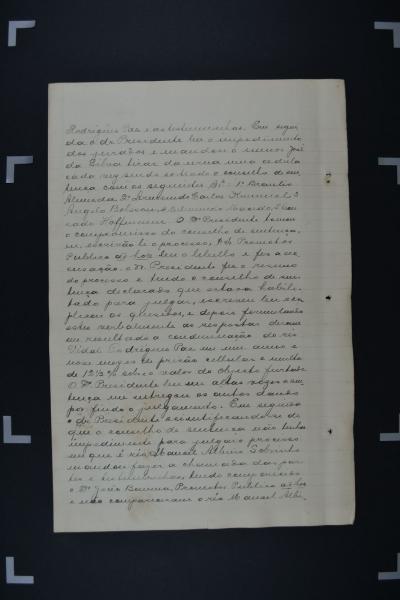 Rodrigues Paz e as testemunhas. Em segui
da o dr Presidente leu o impedimento
dos jurados e mandou o menor José
da Silva tirar da urna uma cedula
cada vez sendo sorteado o conselho de sen
tença com os seguintes Srs: 1º Brautio
Almeida 2º Carlos Kummel 3
Angelo Bolsson 4 Edmundo 5
Hoffmann O Dr Presidente tomou
o compromisso do conselho de sentença,
eu, escrivão li o processo, O Dr Promotor
Publico ad-hoc leu o libello e fez a ac
cusação. o dr. Presidente fez o resumo
do processo e tendo o conselho de sen
tença declarado que estava habili
tado para julgar, escreveu leu e ex
plicou os quesitos, e depois formulando
estes verbalmente as respostas deram
em resultado a condemnação do réu
Vidal Rodrigues Paz em um anno e
nove mezes de prisão cellular e multa
de 12½ % sobre o valor do objecto furtado
O Dr Presidente leu em altas vozes a sen
tença me entregou os autos dando
por findo o julgamento. Em seguida
o dr Presidente scientificando-se de
que o conselho de sentença não tinha
impedimento para julgar o processo
em que é réu Manoel Albino Sobrinho
mandou fazer a chamada das par
tes e testemunhas, tendo comparecido
o Dr João Bonumá, Promotor Publico ad-hoc
e não compareceram o réu Manoel Albi